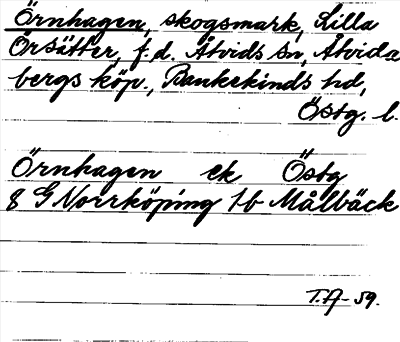 Örnhagen, skogsmark, Lilla
Örsätter, f.d. Åtvids sn, Åtvida
bergs köp., Bankekinds hd,
Östg. l.
Örnhagen ek Östg
8 G Norrköping 1b Målbäck
T.A-59.